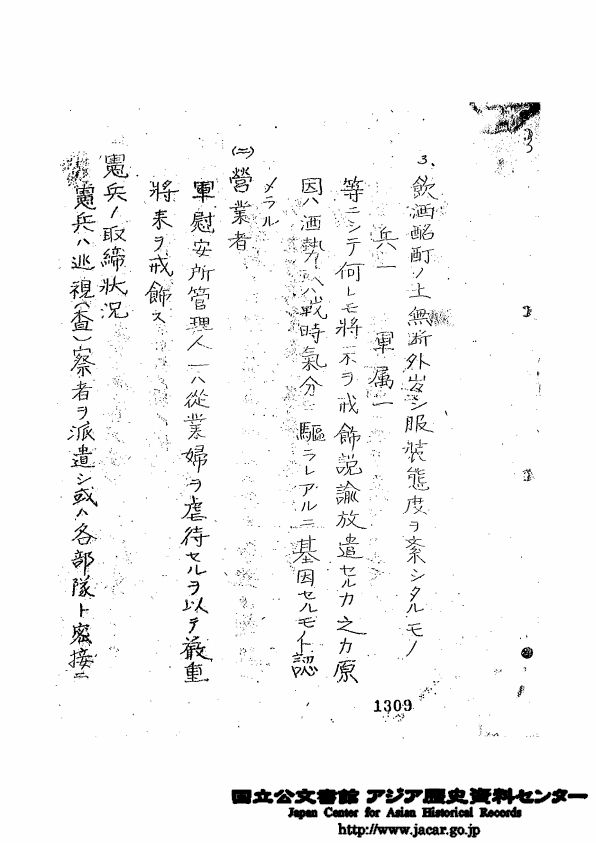 3、飲酒酩酊ノ上無断外出シ服装態度ヲ紊シタルモノ
兵一 軍属一
等ニシテ何レモ将来ヲ戒飾説諭放遣セルカ之カ原
因ハ酒勢又ハ戦時気分ニ駆ラレアルニ基因セルモノト認
メラル
(二)営業者
軍慰安所管理人一ハ従業婦ヲ虐待セルヲ以テ厳重
将来ヲ戒飾ス
憲兵ノ取締状況
憲兵ハ巡視(査)察者ヲ派遣シ或ハ各部隊ト密接ニ
1309
国立公文書館 アジア歴史資料センター
Japan Center for Asian Historical Records
http://www.jacar.go.jp